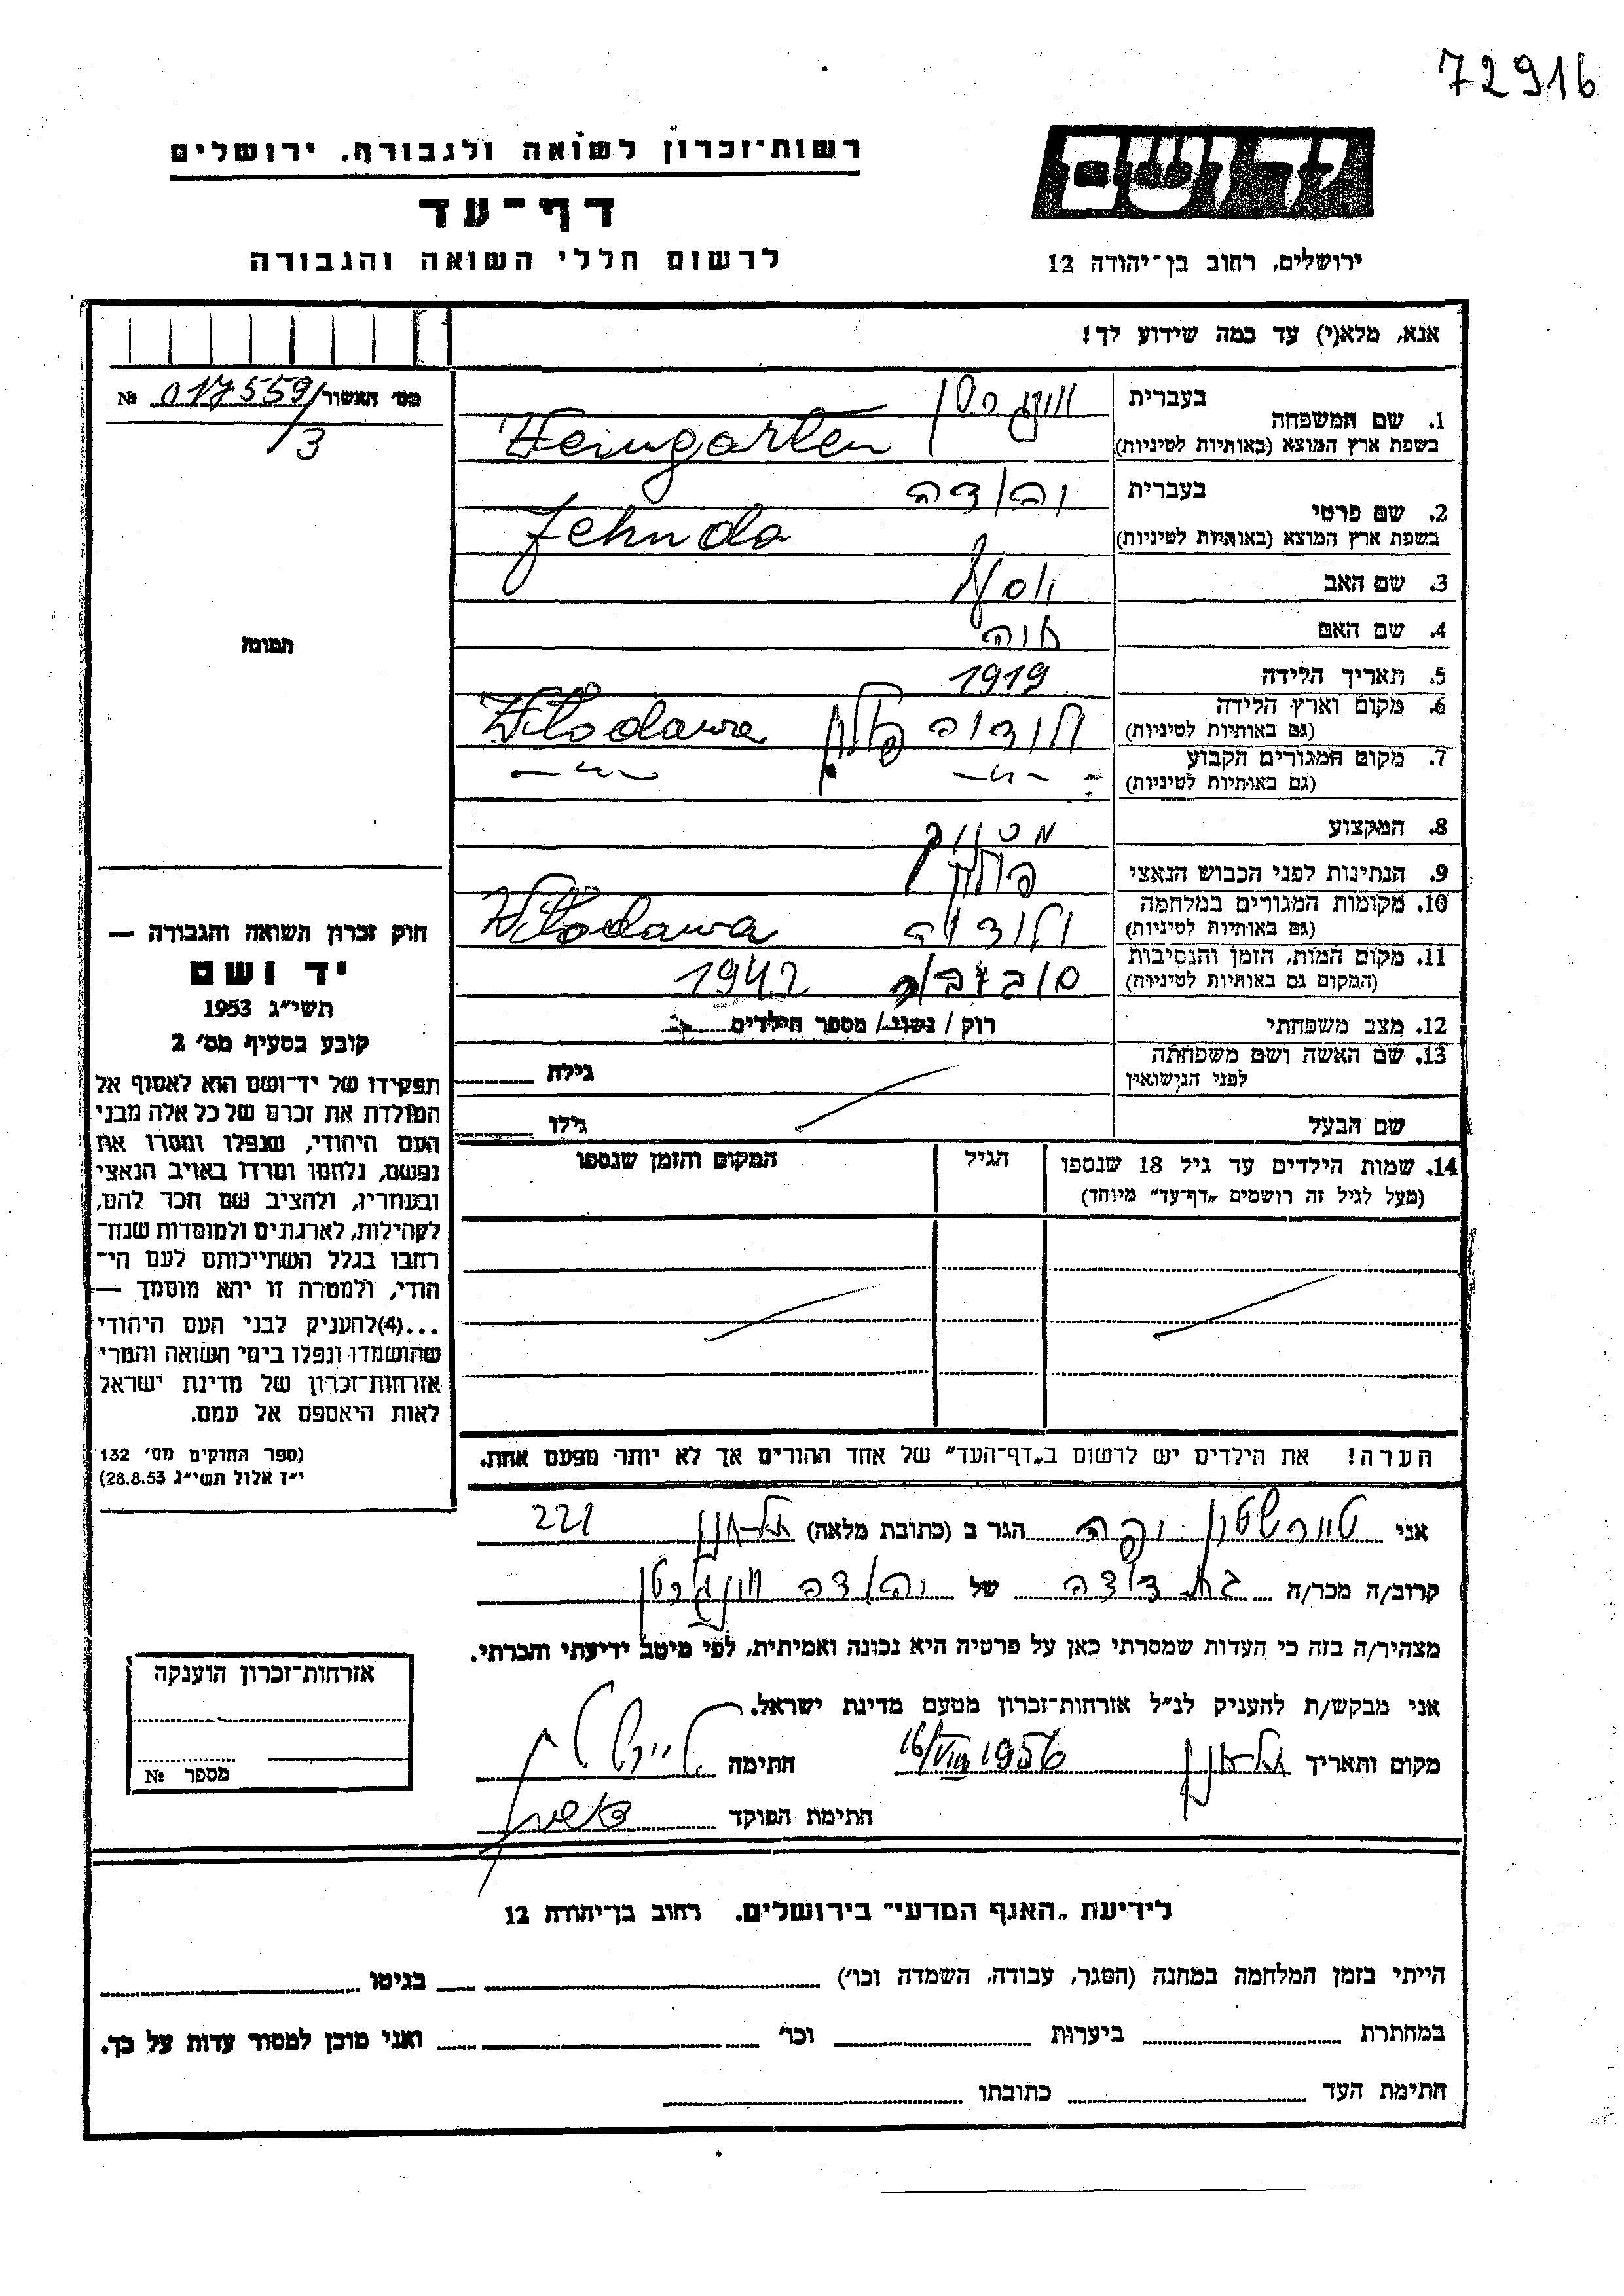 72916
יד ושם
רשות־זכרון לשואה ולגבורה, ירושלים
דף־עד
לרשום חללי השואה והגבורה
ירושלים, רחוב בן־יהודה 12
אנא, מלא(י) עד כמה שידוע לך!
מס׳ האשור 017559/3 №
תמונה
1. שם המשפחה בעברית
בשפת ארץ המוצא (באותיות לטיניות) Weingarten
2. שם פרטי בעברית יהודה
בשפת ארץ המוצא (באותיות לטיניות) Jehuda
3. שם האב יוסף
4. שם האם חוה
5. תאריך הלידה 1919
6. מקום וארץ הלידה ולודוה פולין Włodawa
(גם באותיות לטיניות)
7. מקום המגורים הקבוע — " — — " —
(גם באותיות לטיניות)
8. המקצוע
9. הנתינות לפני הכבוש הנאצי
10. מקומות המגורים במלחמה ולודוה Włodawa
(גם באותיות לטיניות)
11. מקום המות, הזמן והנסיבות סוביבור 1942
(המקום גם באותיות לטיניות)
12. מצב משפחתי רוק / נשוי / מספר הילדים
13. שם האשה ושם משפחתה
לפני הנישואין גילה
שם הבעל גילו
14. שמות הילדים עד גיל 18 שנספו הגיל המקום והזמן שנספו
(מעל לגיל זה רושמים „דף־עד״ מיוחד)
הערה! את הילדים יש לרשום ב„דף־העד״ של אחד ההורים אך לא יותר מפעם אחת.
חוק זכרון השואה והגבורה —
יד ושם
תשי״ג 1953
קובע בסעיף מס׳ 2
תפקידו של יד־ושם הוא לאסוף אל
המולדת את זכרם של כל אלה מבני
העם היהודי, שנפלו ומסרו את
נפשם, נלחמו ומרדו באויב הנאצי
ובעוזריו, ולהציב שם וזכר להם,
לקהילות, לארגונים ולמוסדות שנח־
רבו בגלל השתייכותם לעם הי־
הודי, ולמטרה זו יהא מוסמך —
...(4) להעניק לבני העם היהודי
שהושמדו ונפלו בימי השואה והמרי
אזרחות־זכרון של מדינת ישראל
לאות היאספם אל עמם.
(ספר החוקים מס׳ 132
י״ז אלול תשי״ג 28.8.53)
אני הגר ב (כתובת מלאה) 221
קרוב/ה מכר/ה בת דודה של יהודה
מצהיר/ה בזה כי העדות שמסרתי כאן על פרטיה היא נכונה ואמיתית, לפי מיטב ידיעתי והכרתי.
אני מבקש/ת להעניק לנ״ל אזרחות־זכרון מטעם מדינת ישראל.
מקום ותאריך 16/VIII 1956 חתימה
חתימת הפוקד
אזרחות־זכרון הוענקה
מספר №
לידיעת „האגף המדעי״ בירושלים. רחוב בן־יהודה 12
הייתי בזמן המלחמה במחנה (הסגר, עבודה, השמדה וכו׳) בגיטו
במחתרת ביערות וכו׳ ואני מוכן למסור עדות על כך.
חתימת העד כתובתו